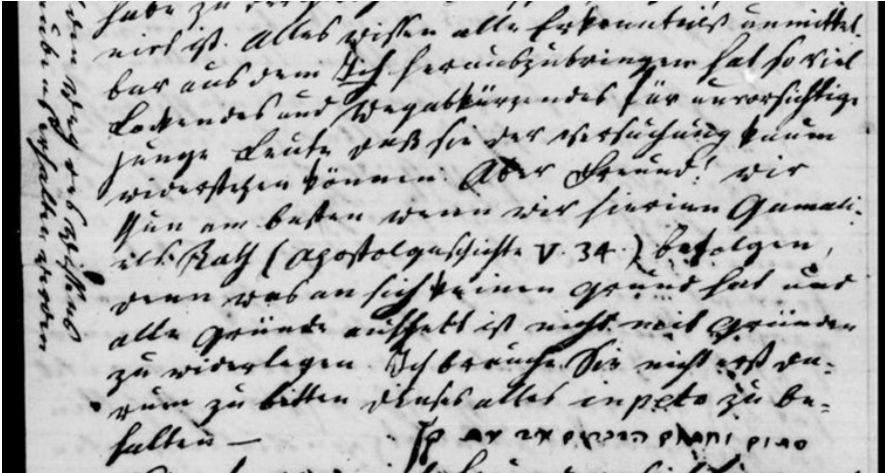 nirt ist. Alles wissen alle Erkenntniß unmittel-
bar aus dem Ich herauszubringen hat so viel
Lockendes und Wegabkürzendes für unvorsichtige
junge Leute daß sie der Versuchung kaum
widerstehen können. Aber Freund! wir
thun am besten wenn wir hierinn Gamali-
els Rath (Apostolgeschichte V. 34.) befolgen,
denn was an sich keinen Grund hat und
alle Gründe aufhebt ist nicht mit Gründen
zu widerlegen. Ich brauche Sie nicht erst da-
rum zu bitten dieses alles in peto zu be-
halten —
den Weg des Wissens